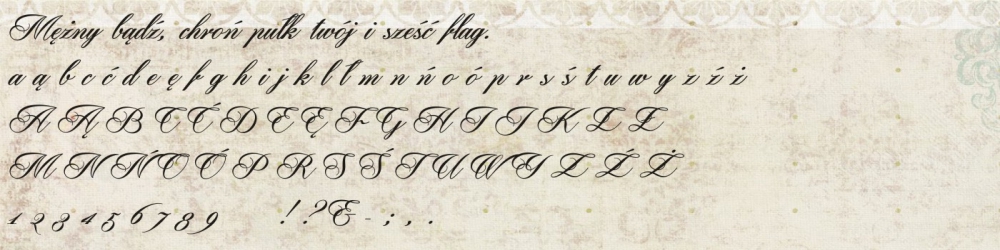 Mężny bądź, chroń pułk twój i sześć flag.
a ą b c ć d e ę f g h i j k l ł m n ń o ó p r s ś t u w y z ź ż
A Ą B C Ć D E Ę F G H I J K L Ł
M N Ń O Ó P R S Ś T U W Y Z Ź Ż
1 2 3 4 5 6 7 8 9 ! ? & - ; , .